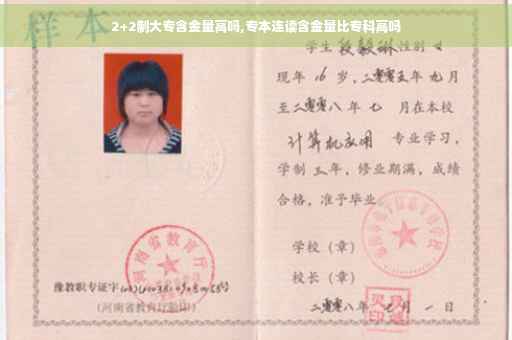 2+2制大专含金量高吗,专本连读含金量比专科高吗
样本
学生段毅琳性别女
现年16岁,二零零五年九月
至二零零八年七月在本校
计算机应用 专业学习,
学制三年,修业期满,成绩
合格,准予毕业
学校(章)
校长(章)
二零零八年 月一日
河南省教育厅
豫教职专证字
(河南省教育厅验印)